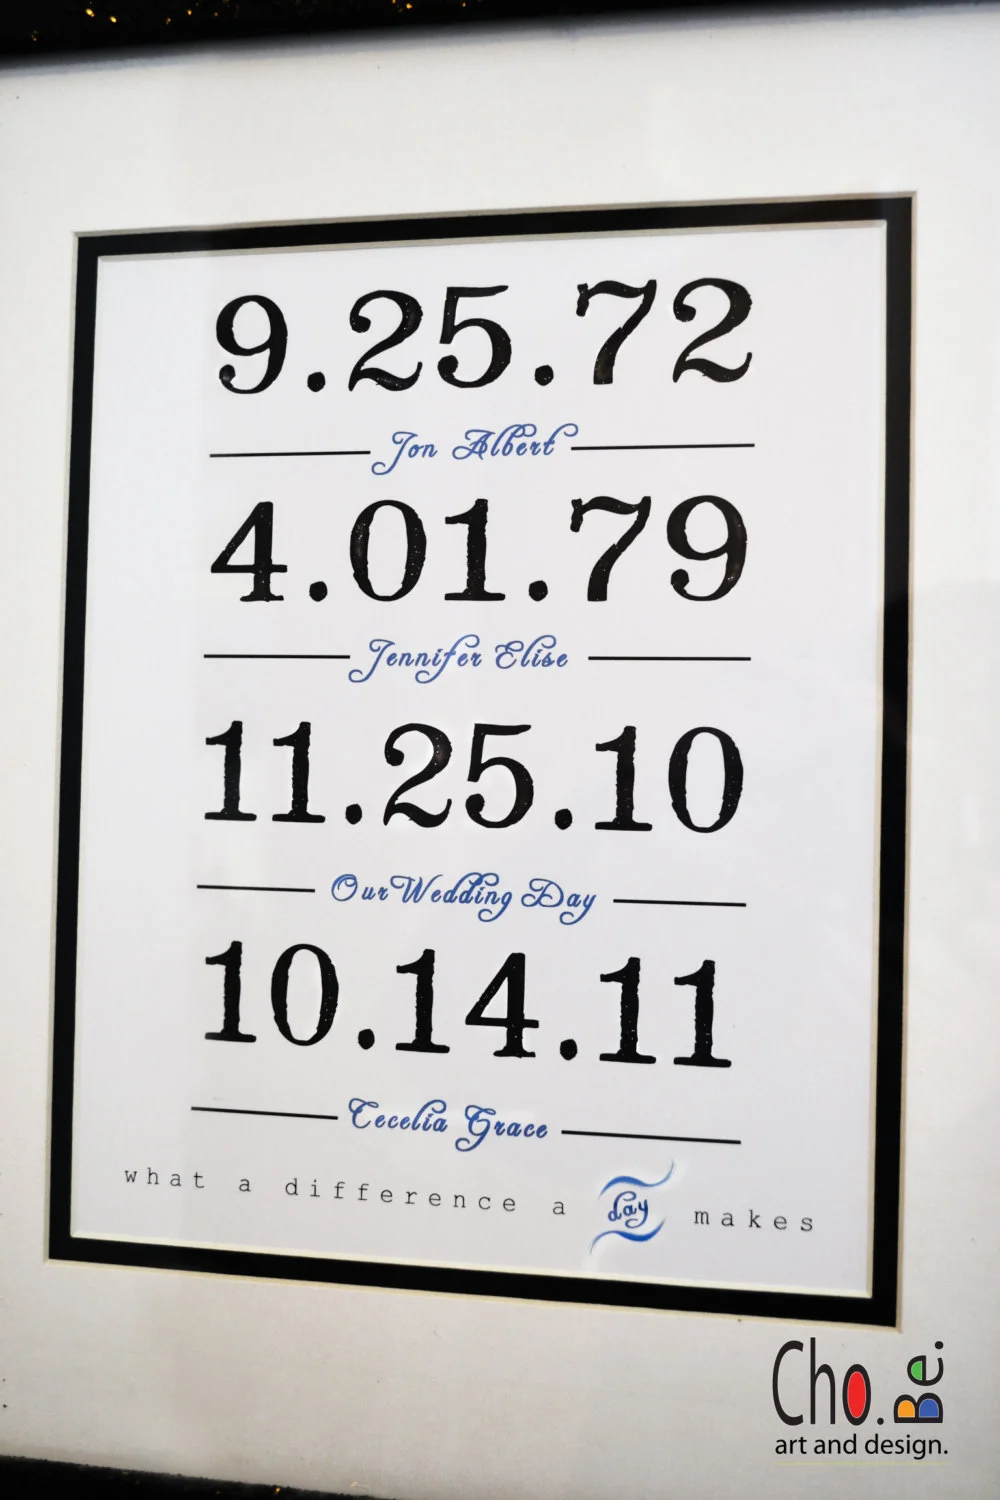 9.25.72
Jon Albert
4.01.79
Jennifer Elise
11.25.10
Our Wedding Day
10.14.11
Cecelia Grace
what a difference a day makes
Cho.Be.
art and design.